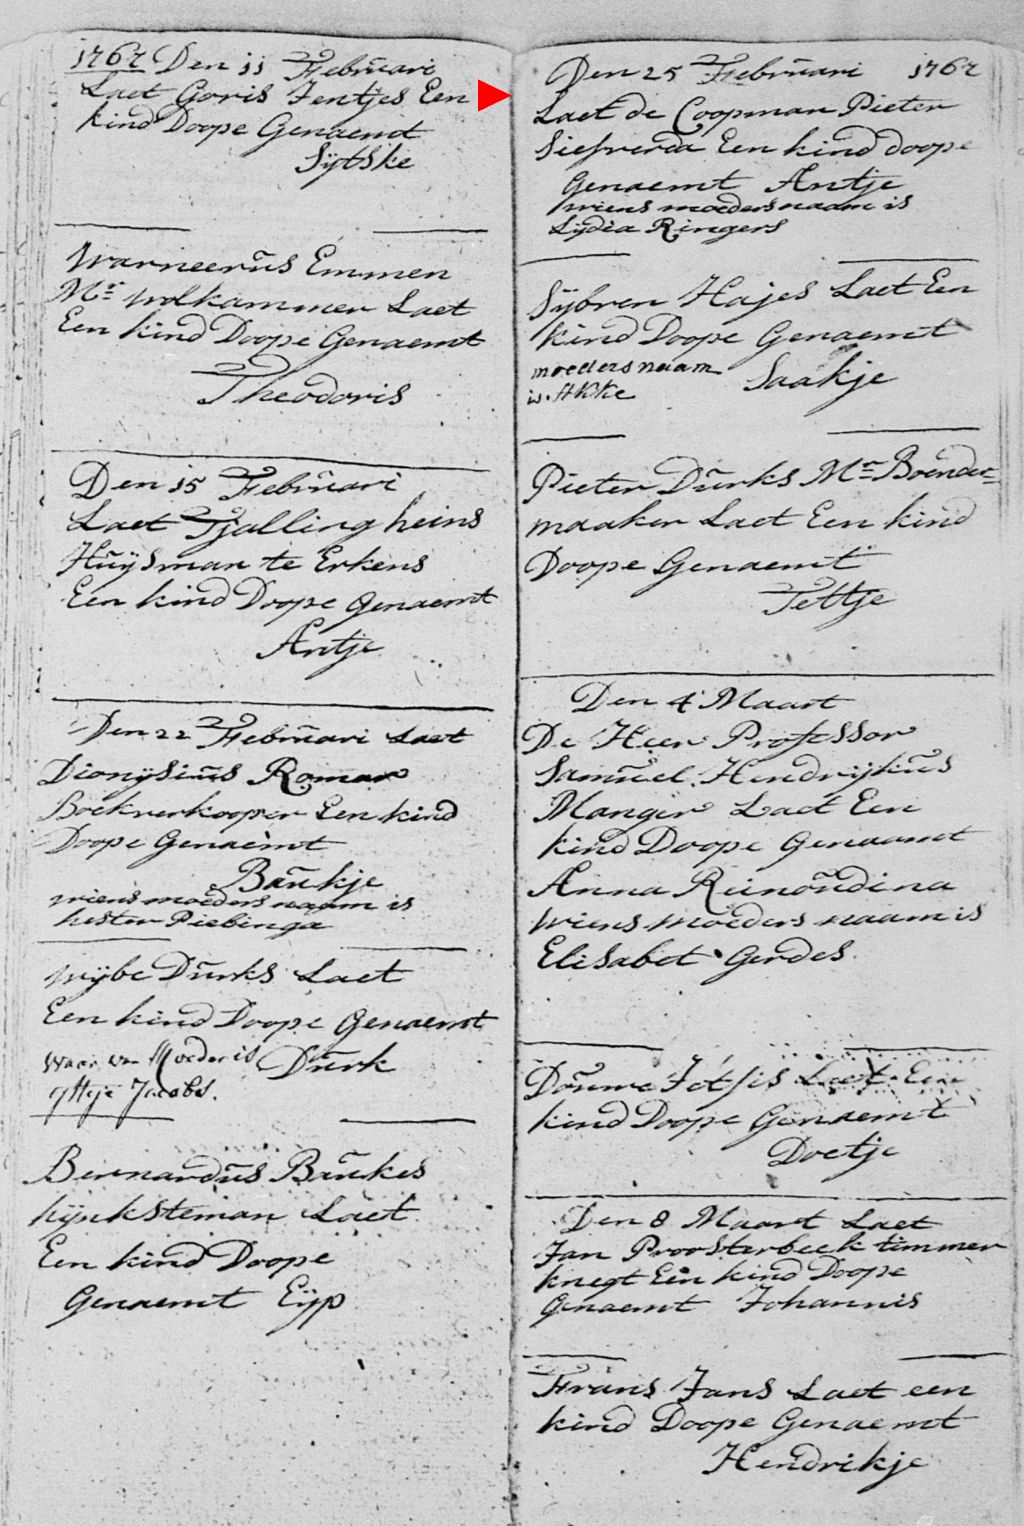 1767 Den 11 Februari
Laet Goris Jentjes Een
kind Doope Genaemt
Sÿtske
Warneerus Emmen
Mr. wolkammer Laet
Een kind Doope Genaemt
Theodoris
Den 15 Februari
Laet Tjalling heins
Huÿsman te Erkens
Een kind Doope Genaemt
Antje
Den 22 Februari Laet
Dionÿsius Romar
Boekverkooper Een kind
Doope Genaemt
Baukje
wiens moeders naam is
hester Piebinga
wÿbe Durks Laet
Een kind Doope Genaemt
Waar van Moeder is Durk
Jacobs.
Bernardus Baukes
Lÿnksteman Laet
Een kind Doope
Genaemt Eÿp
Den 25 Februari 1767
Laet de Coopman Pieter
Een kind doope
Genaemt Antje
wiens moeders naam is
Lÿdia Ringers
Sÿbren Hajes Laet Een
kind Doope Genaemt
moeders naam Saakje
is. Akke
Pieter Durks Mr. Boender=
maaker Laet Een kind
Doope Genaemt
Tettje
Den 4 Maart
De Heer Professor
Samuel Hendrijkus
Manger Laet Een
kind Doope Genaamt
Anna Reinoudina
wiens moeders naam is
Elisabet Gerdes
Douwe Jetsis Laet Een
kind Doope Genaemt
Doetje
Den 8 Maart Laet
Jan Proosterbeek timmer
knegt Een kind Doope
Genaemt Johannis
Frans Jans Laet een
kind Doope Genaemt
Hendrikje